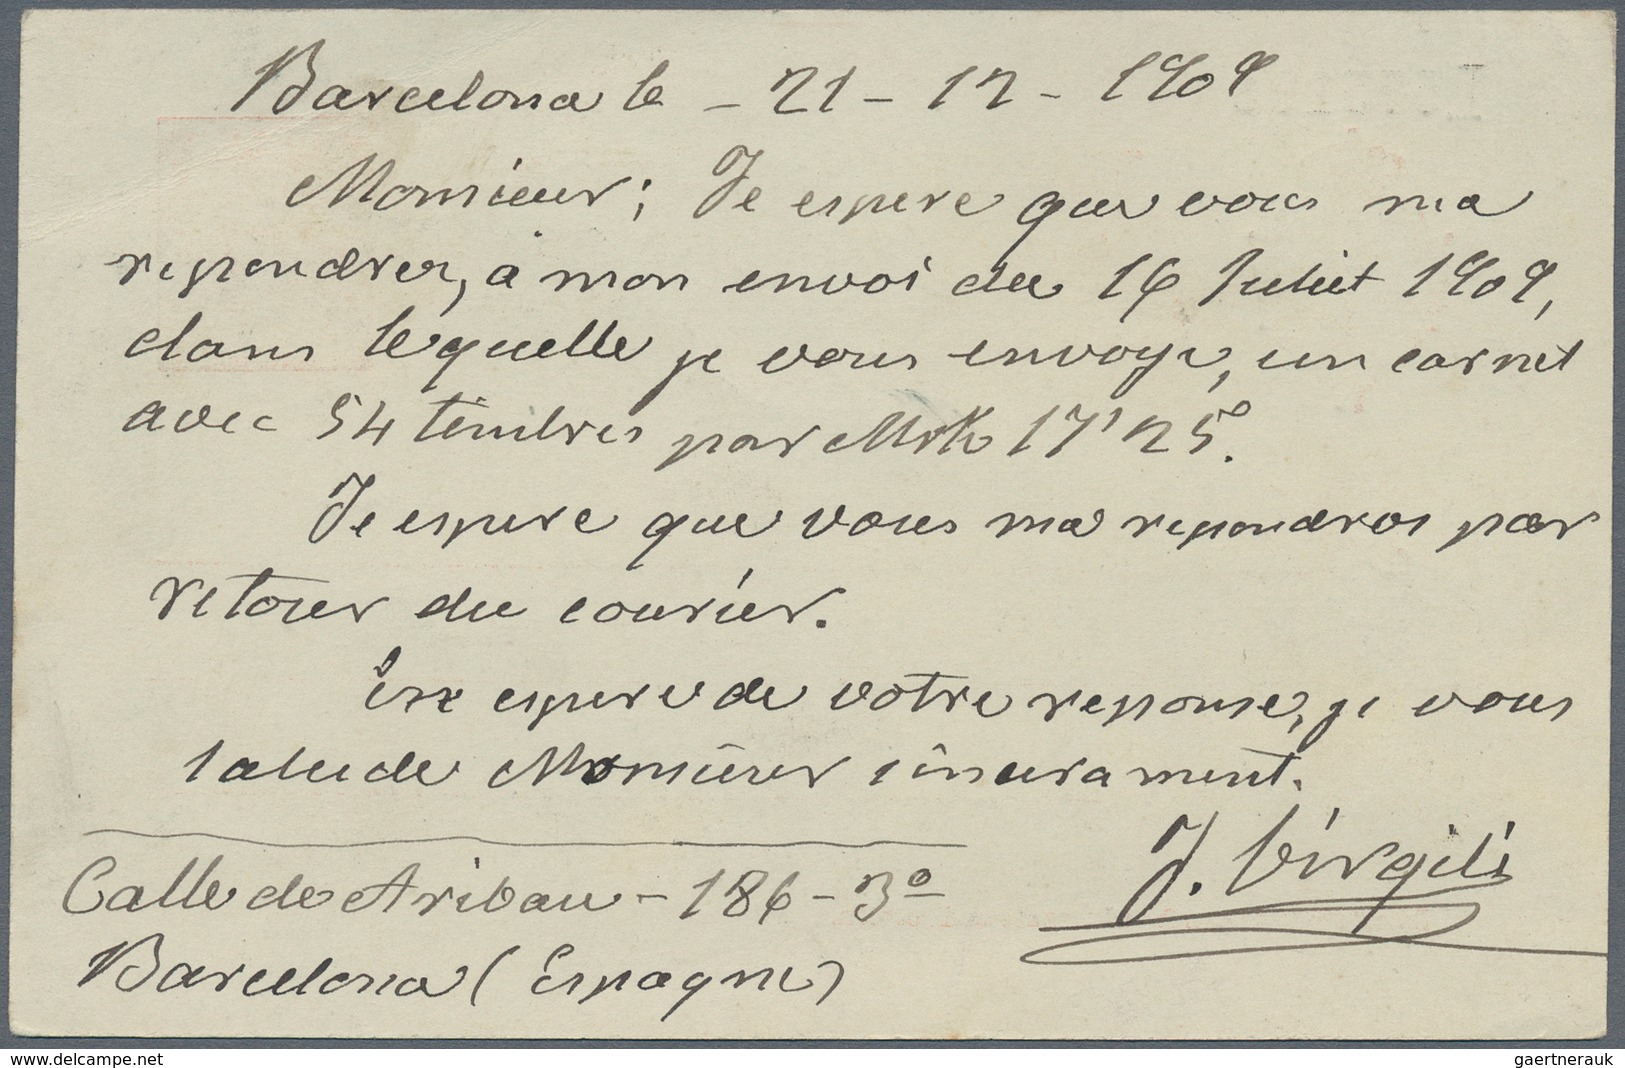 Barcelona le - 21 - 12 - 1909
Monsieur; Je espere que vous ma
repondrez, a mon envoi du 16 Juliet 1909,
dans lequelle je vous envoye, un carnet
avec 54 timbres par Mrk 17'25.
Je espere que vous ma repondros par
retour du courier.
En espere de votre reponse, je vous
salude Monsieur sinserament.
J. Virgili
Calle de Aribau - 186 - 3º
Barcelona (Espagne)
www.delcampe.net
gaertnerauk